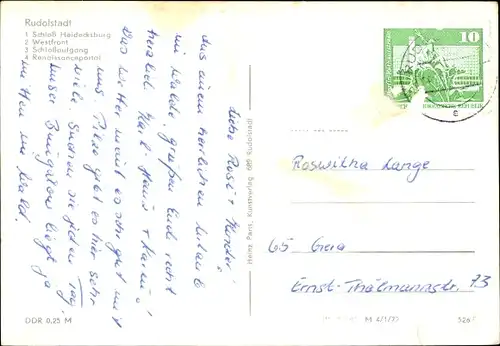 Rudolstadt
1 Schloß Heidecksburg
2 Westfront
3 Schloßaufgang
4 Renaissanceportal
Liebe Rosi + Kinder!
Aus einem herrlichen Urlaub
im Walde grüßen Euch recht
herzlich Karl-Heinz + Karin!
Das Wetter meint es sehr gut mit
uns. Pilze gibt es hier sehr
viele. Suchen sie jeden Tag,
unser Bungalow liegt ja
mitten im Wald.
DDR 0,25 M
Heinz Paris, Kunstverlag 689 Rudolstadt
10
Roswitha Lange
65 Gera
Ernst-Thälmannstr. 73
M 4/1/72
526